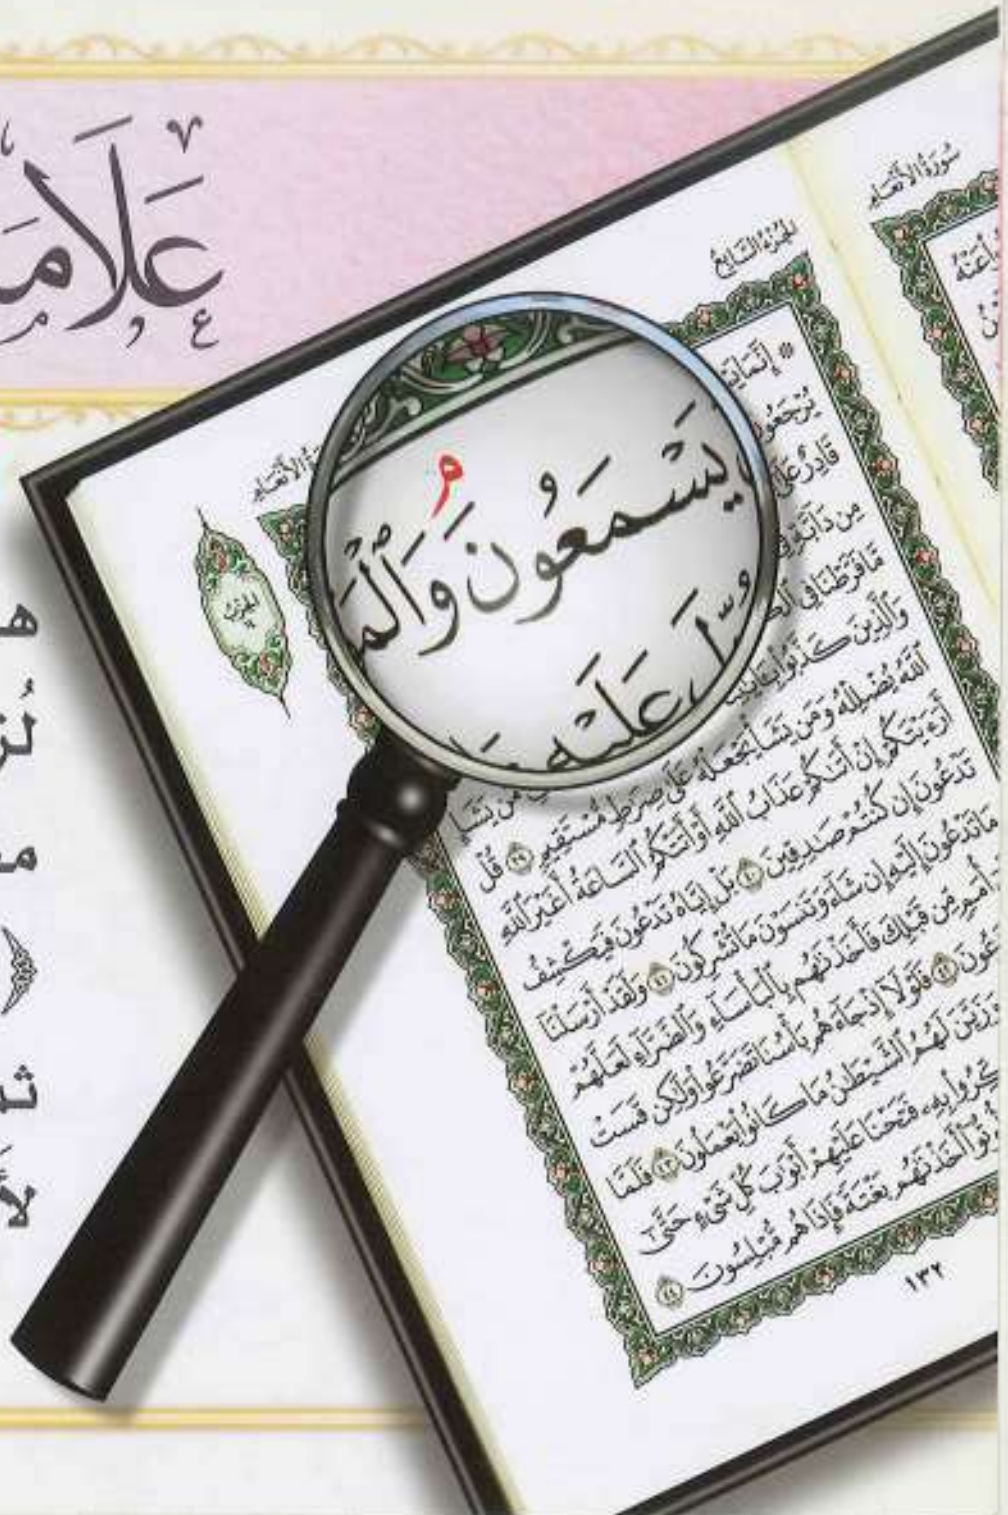 عَلَامَ
سُورَةُ الْأَنْعَامِ
الجُزْءُ السَّابِعُ
يَسْمَعُونَ ۘ وَٱلْمَ
عَلَيْهِ
الحِزْبُ
مِن دَآبَّةٖ
مَّا فَرَّطْنَا فِي
وَٱلَّذِينَ كَذَّبُواْ بِـَٔايَٰتِنَا
مَن يَشَإِ
ٱللَّهُ يُضْلِلْهُ وَمَن يَشَأْ يَجْعَلْهُ عَلَىٰ صِرَٰطٖ مُّسْتَقِيمٖ ٣٩ قُلْ
أَرَءَيْتَكُمْ إِنْ أَتَىٰكُمْ عَذَابُ ٱللَّهِ أَوْ أَتَتْكُمُ ٱلسَّاعَةُ أَغَيْرَ ٱللَّهِ
تَدْعُونَ إِن كُنتُمْ صَٰدِقِينَ ٤٠ بَلْ إِيَّاهُ تَدْعُونَ فَيَكْشِفُ
مَا تَدْعُونَ إِلَيْهِ إِن شَآءَ وَتَنسَوْنَ مَا تُشْرِكُونَ ٤١ وَلَقَدْ أَرْسَلْنَآ
أُمَمٖ مِّن قَبْلِكَ فَأَخَذْنَٰهُم بِٱلْبَأْسَآءِ وَٱلضَّرَّآءِ لَعَلَّهُمْ
٤٢ فَلَوْلَآ إِذْ جَآءَهُم بَأْسُنَا تَضَرَّعُواْ وَلَٰكِن قَسَتْ
وَزَيَّنَ لَهُمُ ٱلشَّيْطَٰنُ مَا كَانُواْ يَعْمَلُونَ ٤٣ فَلَمَّا
ذُكِّرُواْ بِهِۦ فَتَحْنَا عَلَيْهِمْ أَبْوَٰبَ كُلِّ شَيْءٍ حَتَّىٰٓ
أُوتُوٓاْ أَخَذْنَٰهُم بَغْتَةٗ فَإِذَا هُم مُّبْلِسُونَ ٤٤
١٣٢